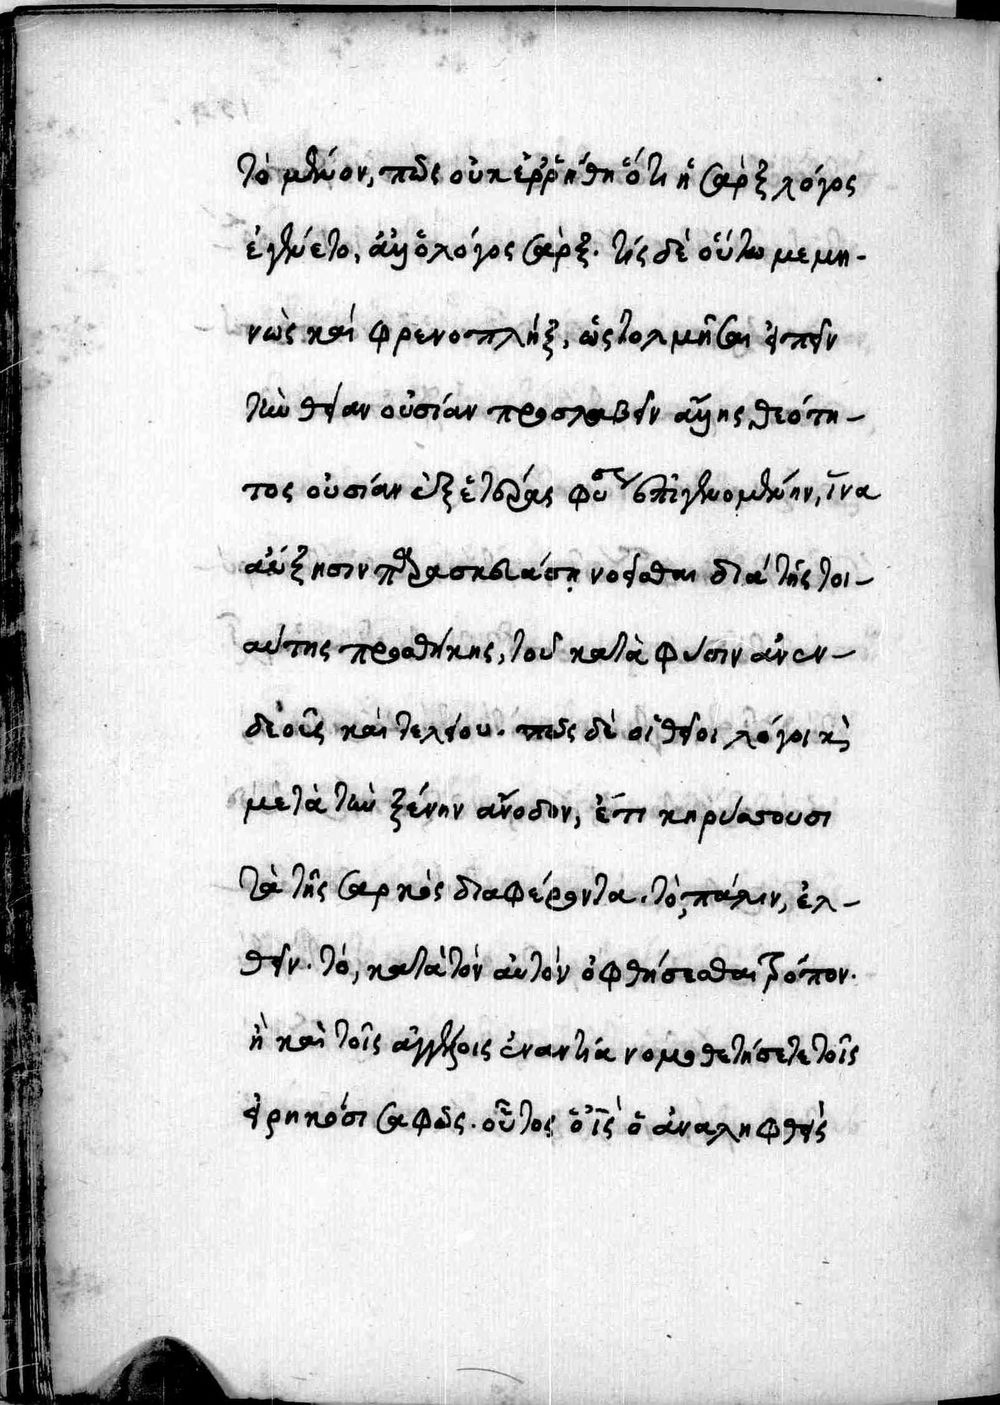 τὸ μένον, πῶς οὐκ ἐρρήθη ὅτι ἡ σὰρξ λόγος
ἐγένετο, ἀλλ' ὁ λόγος σάρξ. τίς δὲ οὕτω μεμη-
νὼς καὶ φρενοπλήξ, ὡς τολμῆσαι εἰπεῖν
τὴν θείαν οὐσίαν προσλαβεῖν ἄλλης θεότη-
τος οὐσίαν ἐξ ἑτέρας φύσεως ἐπιγενομένην, ἵνα
αὔξησιν παρασκευάσῃ νοεῖσθαι διὰ τῆς τοι-
αύτης προσθήκης, τοῦ κατὰ φύσιν ἀνεν-
δεοῦς καὶ τελείου. πῶς δὲ οἱ θεῖοι λόγοι καὶ
μετὰ τὴν ξένην ἄνοδον, ἔτι κηρύσσουσι
τὰ τῆς σαρκὸς διαφέροντα. τὸ, πάλιν, ἐλ-
θεῖν. τό, κατὰ τὸν αὐτὸν ὀφθήσεσθαι τρόπον.
ἢ καὶ τοῖς ἀγγέλοις ἐναντία νομοθετήσετε τοῖς
εἰρηκόσι σαφῶς. οὗτος ὁ ἰς ὁ ἀναληφθεὶς